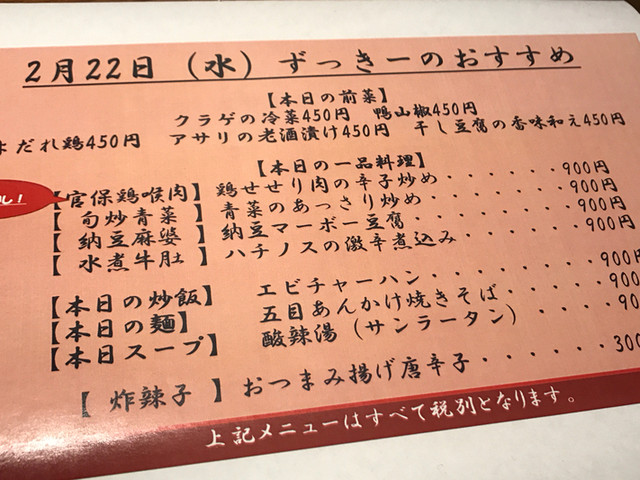 2月22日（水）ずっきーのおすすめ
【本日の前菜】
クラゲの冷菜450円 鴨山椒450円
だれ鶏450円 アサリの老酒漬け450円 干し豆腐の香味和え450円
【本日の一品料理】
【宮保鶏喉肉】鶏せせり肉の辛子炒め・・・・・・900円
【旬炒青菜】青菜のあっさり炒め・・・・・・・900円
【納豆麻婆】納豆マーボー豆腐・・・・・・・・900円
【水煮牛肚】ハチノスの激辛煮込み・・・・・・900円
【本日の炒飯】エビチャーハン・・・・・・・・900円
【本日の麺】五目あんかけ焼きそば・・・・・・900
【本日スープ】酸辣湯（サンラータン）・・・・・90
【炸辣子】おつまみ揚げ唐辛子・・・・・・300
上記メニューはすべて税別となります。